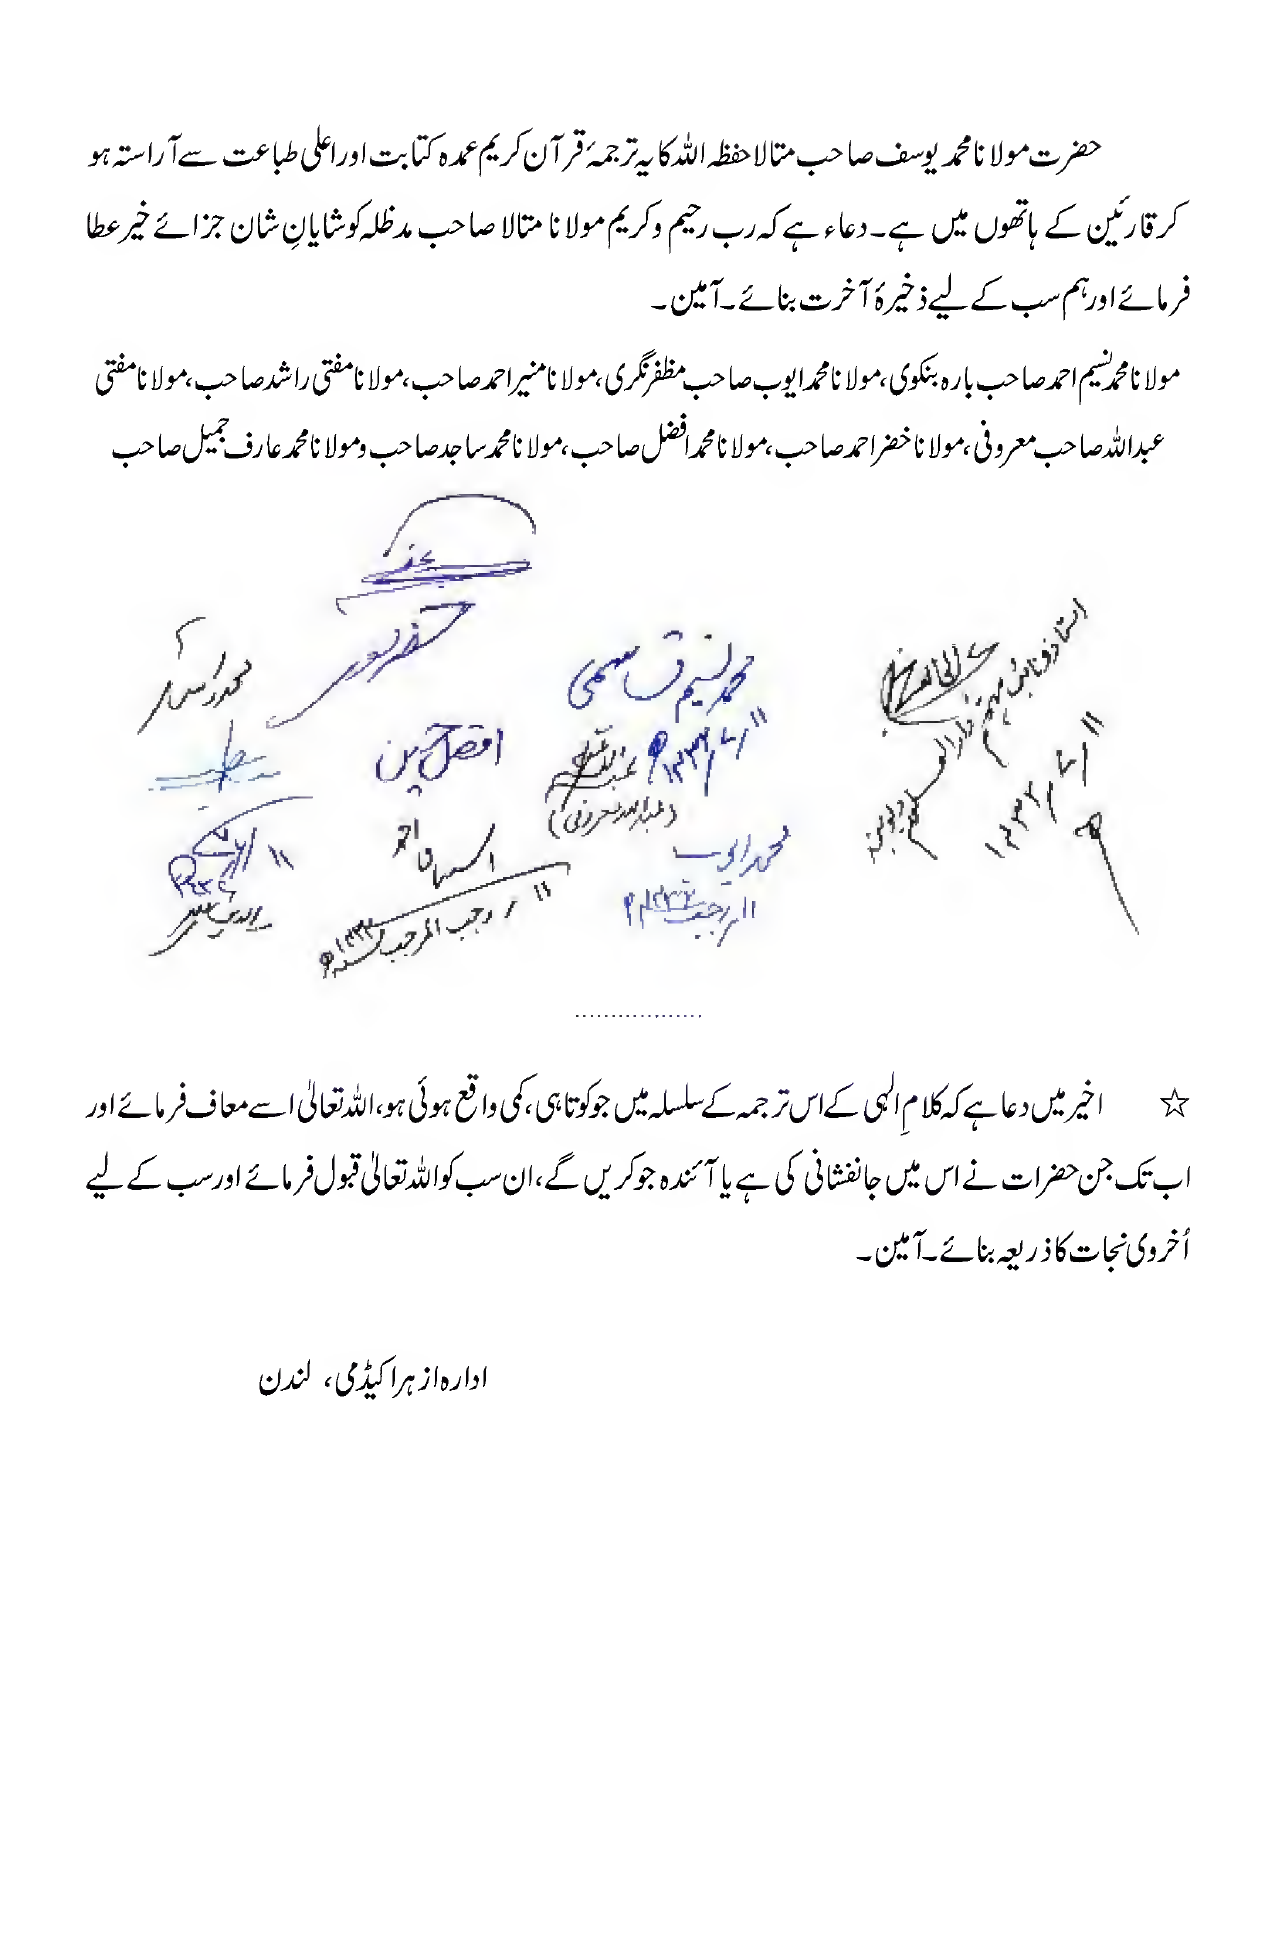 حضرت مولانا محمد یوسف صاحب متالا حفظہ اللہ کا یہ ترجمۂ قرآن کریم عمدہ کتابت اور اعلی طباعت سے آراستہ ہو
کر قارئین کے ہاتھوں میں ہے۔ دعاء ہے کہ رب رحیم و کریم مولانا متالا صاحب مدظلہ کو شایانِ شان جزائے خیر عطا
فرمائے اور ہم سب کے لیے ذخیرۂ آخرت بنائے۔ آمین۔
مولانا محمد نسیم احمد صاحب بارہ بنکوی، مولانا محمد ایوب صاحب مظفر نگری، مولانا منیر احمد صاحب، مولانا مفتی راشد صاحب، مولانا مفتی
عبداللہ صاحب معروفی، مولانا خضر احمد صاحب، مولانا محمد افضل صاحب، مولانا محمد ساجد صاحب و مولانا محمد عارف جمیل صاحب
استاذ و نائب مہتمم دارالعلوم دیوبند
۱۱/۷/۱۴۳۳ھ
محمد نسیم قاسمی
۱۱/۷/۱۴۳۳ھ
افضل حسین
(عبداللہ معروفی)
محمد ایوب
۱۱/رجب ۱۴۳۳ھ
۱۱/رجب المرجب ۱۴۳۳ھ
..................
☆ اخیر میں دعا ہے کہ کلامِ الٰہی کے اس ترجمہ کے سلسلہ میں جو کوتاہی، کمی واقع ہوئی ہو، اللہ تعالیٰ اسے معاف فرمائے اور
اب تک جن حضرات نے اس میں جانفشانی کی ہے یا آئندہ جو کریں گے، ان سب کو اللہ تعالیٰ قبول فرمائے اور سب کے لیے
اُخروی نجات کا ذریعہ بنائے۔ آمین۔
ادارہ ازہر اکیڈمی، لندن